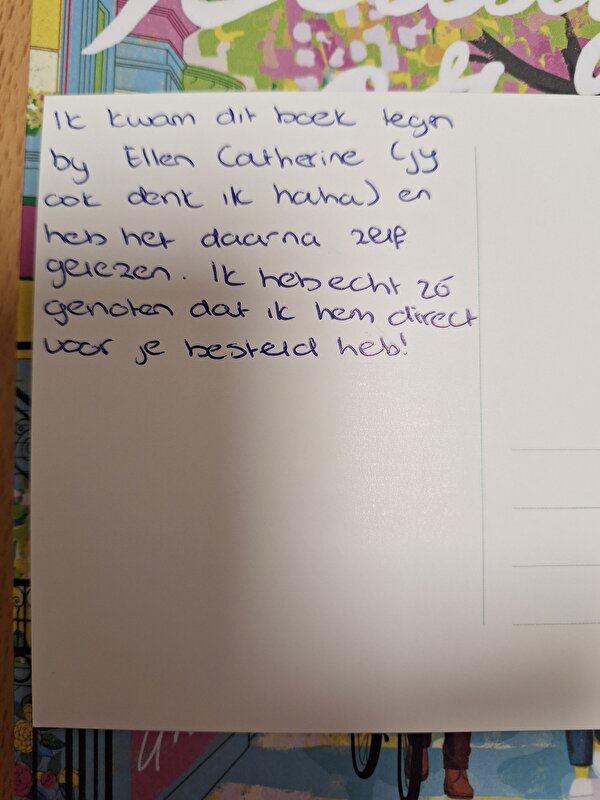 Ik kwam dit boek tegen
by Ellen Catherine (jy
ook denk ik haha) en
heb het daarna zelf
gelezen. Ik heb echt zó
genoten dat ik hem direct
voor je besteld heb!